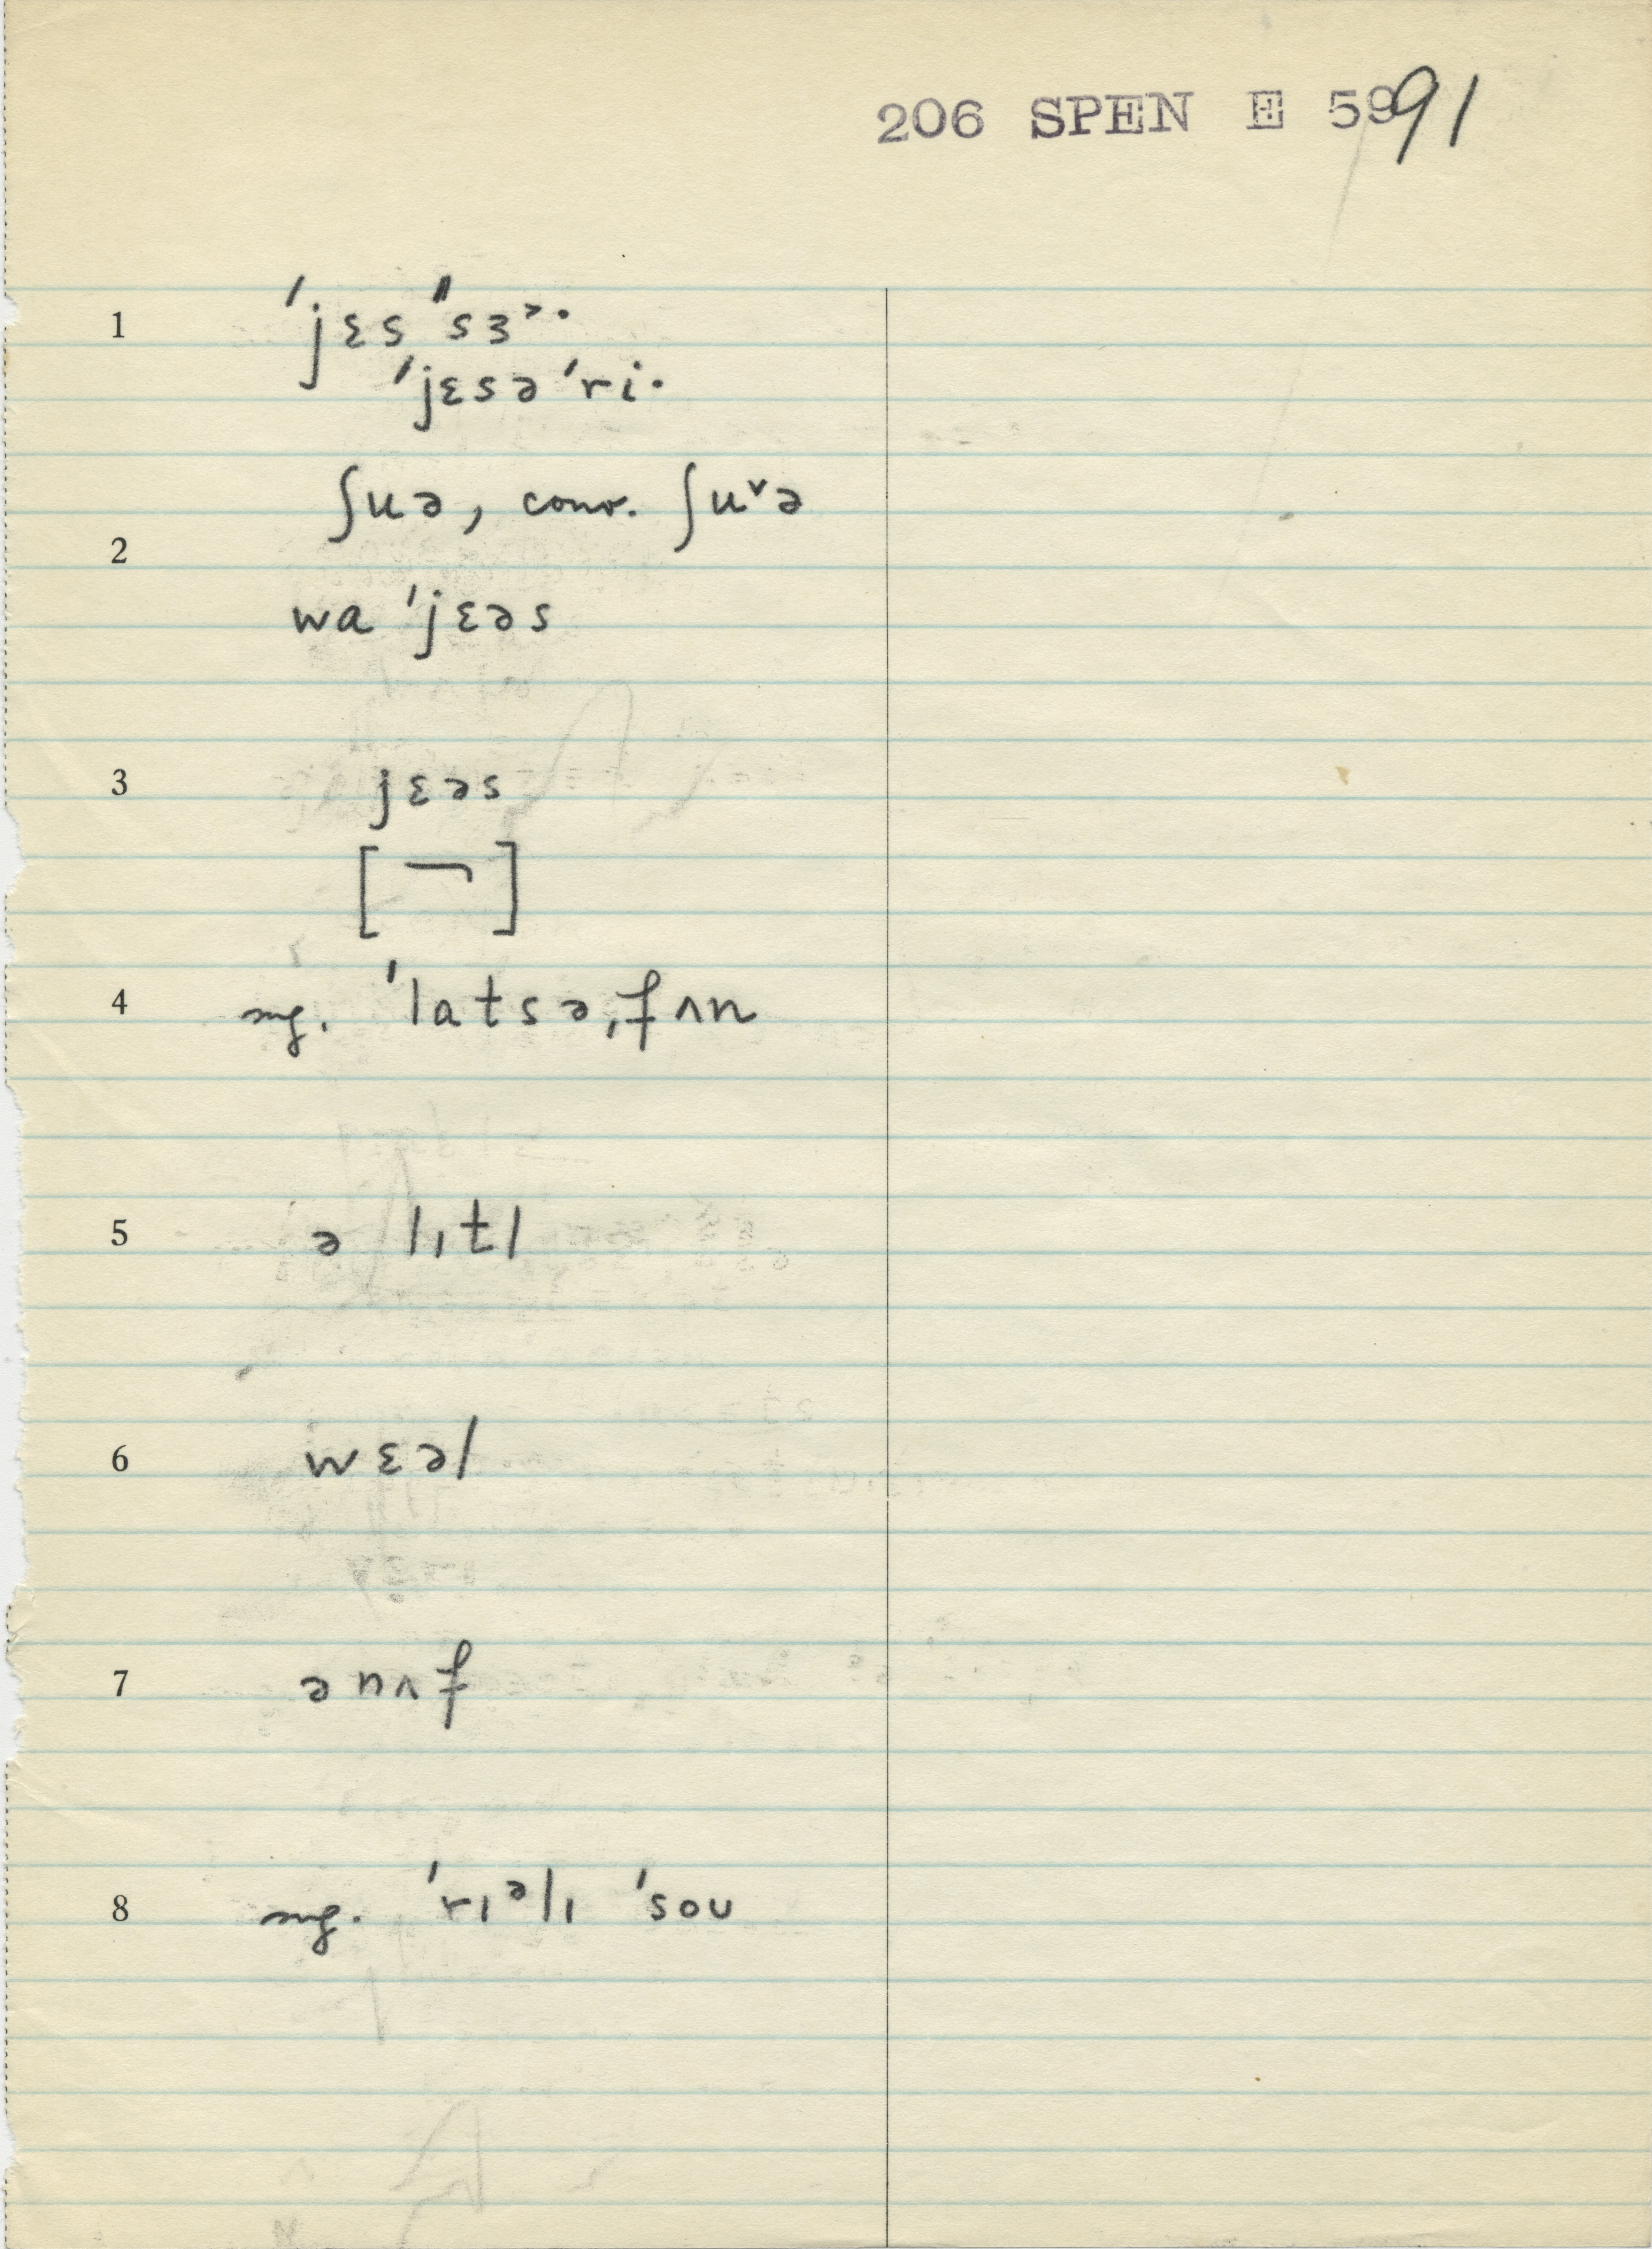 206 SPEN E 5991
1 ˈjɛs ˈˈsɜ˃·
ˈjɛsə ˈri·
ʃuə, conv. ʃu˅ə
2
wa ˈjɛəs
3 jɛəs
[ ¬ ]
4 sug. ˈlatsəˌfʌn
5 ə lɪtl
6 wɛəl
7 ənʌf
8 sug. ˈrɪᵊlɪ ˈsoʊ